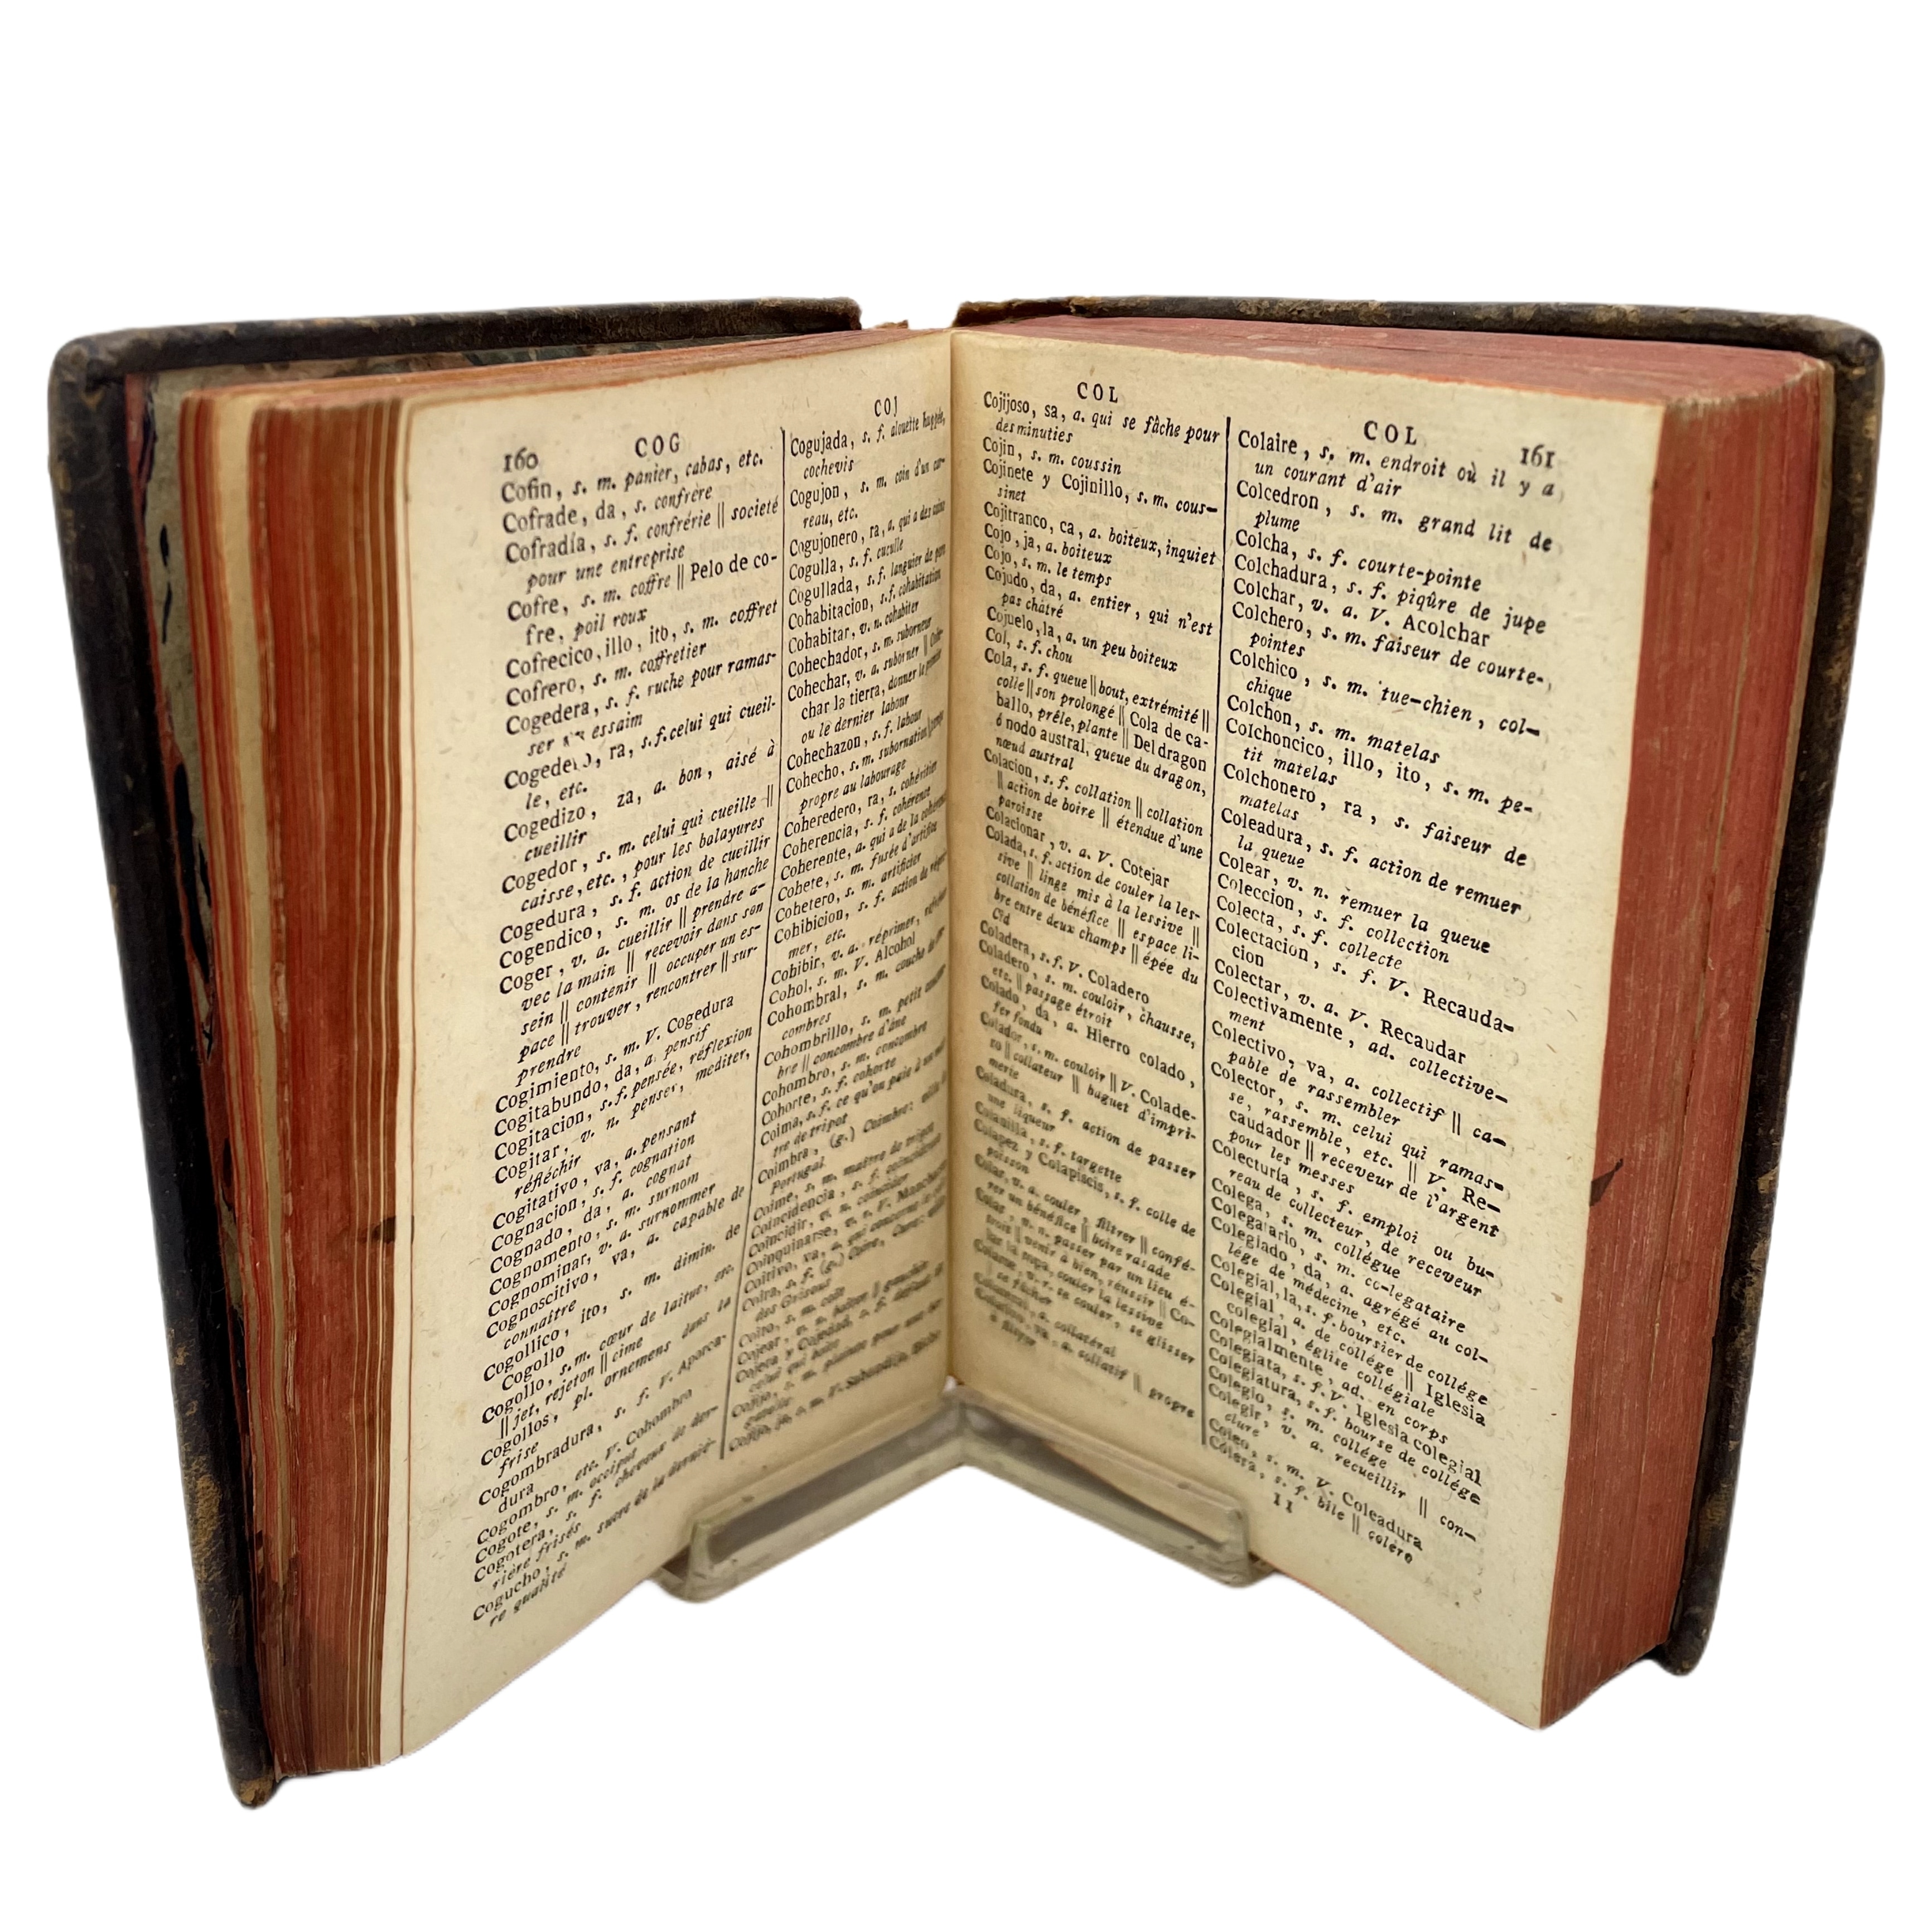 160
COG
Cofin, s. m. panier, cabas, etc.
Cofrade, da, s. confrère
Cofradía, s. f. confrérie || societé
pour une entreprise
Cofre, s. m. coffre || Pelo de co-
fre, poil roux
Cofrecico, illo, ito, s. m. coffret
Cofrero, s. m. coffretier
Cogedera, s. f. ruche pour ramas-
ser essaim
ra, s. f. celui qui cueil-
le, etc.
Cogedizo, za, a. bon, aisé à
cueillir
Cogedor, s. m. celui qui cueille ||
caisse, etc., pour les balayures
Cogedura, s. f. action de cueillir
Cogendico, s. m. os de la hanche
Coger, v. a. cueillir || prendre a-
vec la main || recevoir dans son
sein || contenir || occuper un es-
pace || trouver, rencontrer || sur-
prendre
Cogimiento, s. m. V. Cogedura
Cogitabundo, da, a. pensif
Cogitacion, s. f. pensée, réflexion
Cogitar, v. n. penser, mediter,
réfléchir
Cogitativo, va, a. pensant
Cognacion, s. f. cognation
Cognado, da, a. cognat
Cognomento, s. m. surnom
Cognominar, v. a. surnommer
Cognoscitivo, va, a. capable de
connaître
Cogollico, ito, s. m. dimin. de
Cogollo
Cogollo, s. m. cœur de laitue, etc.
|| jet, rejeton || cime
Cogollos, pl. ornemens dans la
frise
Cogombradura, s. f. V. Aporca-
dura
Cogombro, etc. V. Cohombro
Cogote, s. m. occiput
Cogotera, s. f. cheveux de der-
rière frisés
Cogucho, s. m. sucre de la derniè-
re qualité
COJ
Cogujada, s. f. alouette huppée,
cochevis
Cogujon, s. m. coin d'un car-
reau, etc.
Cogujonero, ra, a. qui a des coins
Cogulla, s. f. cuculle
Cogullada, s. f. languier de porc
Cohabitacion, s. f. cohabitation
Cohabitar, v. n. cohabiter
Cohechador, s. m. suborneur
Cohechar, v. a. suborner ||
char la tierra, donner le premier
ou le dernier labour
Cohechazon, s. f. labour
Cohecho, s. m. subornation || temps
propre au labourage
Coheredero, ra, s. cohéritier
Coherencia, s. f. cohérence
Coherente, a. qui a de la cohérence
Cohete, s. m. fusée d'artifice
Cohetero, s. m. artificier
Cohibicion, s. f. action de
mer, etc.
Cohibir, v. a. réprimer,
Cohol, s. m. V. Alcohol
Cohombral, s. m. couche de
combres
Cohombrillo, s. m. petit
bre || concombre d'âne
Cohombro, s. m. concombre
Cohorte, s. f. cohorte
Coima, s. f. ce qu'on paie à un
tre de tripot
Coimbra, (g.) Coimbre: ville
Portugal
Coime, s. m. maître de tripot
Coincidencia, s. f. coincidence
Coincidir, v. n. coincider
Coinquinarse, v. r. V. Mancharse
Coitivo, va, a. qui concerne
Coira, s. f. (g.) Coire,
des Grisons
Coito, s. m. coït
Cojear, v. n. boiter ||
Cojera y Cojedad, s. f.
celui qui boite
COL
Cojijoso, sa, a. qui se fâche pour
des minuties
Cojin, s. m. coussin
Cojinete y Cojinillo, s. m. cous-
sinet
Cojitranco, ca, a. boiteux, inquiet
Cojo, ja, a. boiteux
Cojo, s. m. le temps
Cojudo, da, a. entier, qui n'est
pas châtré
Cojuelo, la, a. un peu boiteux
Col, s. f. chou
Cola, s. f. queue || bout, extrémité ||
colle || son prolongé || Cola de ca-
ballo, prêle, plante || Del dragon
ó nodo austral, queue du dragon,
nœud austral
Colacion, s. f. collation || collation
|| action de boire || étendue d'une
paroisse
Colacionar, v. a. V. Cotejar
Colada, s. f. action de couler la les-
sive || linge mis à la lessive ||
collation de bénéfice || espace li-
bre entre deux champs || épée du
Cid
Coladera, s. f. V. Coladero
Coladero, s. m. couloir, chausse,
etc. || passage étroit
Colado, da, a. Hierro colado,
fer fondu
Colador, s. m. couloir || V. Colade-
ro || collateur || baquet d'impri-
merie
Coladura, s. f. action de passer
une liqueur
Colanilla, s. f. targette
Colapez y Colapiscis, s. f. colle de
poisson
Colar, v. a. couler, filtrer || confé-
rer un bénéfice || boire rasade
Colar, v. n. passer par un lieu é-
troit || venir à bien, réussir || Co-
lar la ropa, couler la lessive
Colarse, v. r. se couler, se glisser
|| se fâcher
Colateral, a. collatéral
Colativo, va, a. collatif || propre
à filtrer
COL
161
Colaire, s. m. endroit où il y a
un courant d'air
Colcedron, s. m. grand lit de
plume
Colcha, s. f. courte-pointe
Colchadura, s. f. piqûre de jupe
Colchar, v. a. V. Acolchar
Colchero, s. m. faiseur de courte-
pointes
Colchico, s. m. tue-chien, col-
chique
Colchon, s. m. matelas
Colchoncico, illo, ito, s. m. pe-
tit matelas
Colchonero, ra, s. faiseur de
matelas
Coleadura, s. f. action de remuer
la queue
Colear, v. n. remuer la queue
Coleccion, s. f. collection
Colecta, s. f. collecte
Colectacion, s. f. V. Recauda-
cion
Colectar, v. a. V. Recaudar
Colectivamente, ad. collective-
ment
Colectivo, va, a. collectif || ca-
pable de rassembler
Colector, s. m. celui qui ramas-
se, rassemble, etc. || V. Re-
caudador || receveur de l'argent
pour les messes
Colecturía, s. f. emploi ou bu-
reau de collecteur, de receveur
Colega, s. m. collégue
Colegatario, s. m. co-legataire
Colegiado, da, a. agrégé au col-
lége de médecine, etc.
Colegial, la, s. f. boursier de collége
Colegial, a. de collége || Iglesia
colegial, église collégiale
Colegialmente, ad. en corps
Colegiata, s. f. V. Iglesia colegial
Colegiatura, s. f. bourse de collége
Colegio, s. m. collége
Colegir, v. a. recueillir || con-
clure
Coleo, s. m. V. Coleadura
Colera, s. f. bile || colere
11